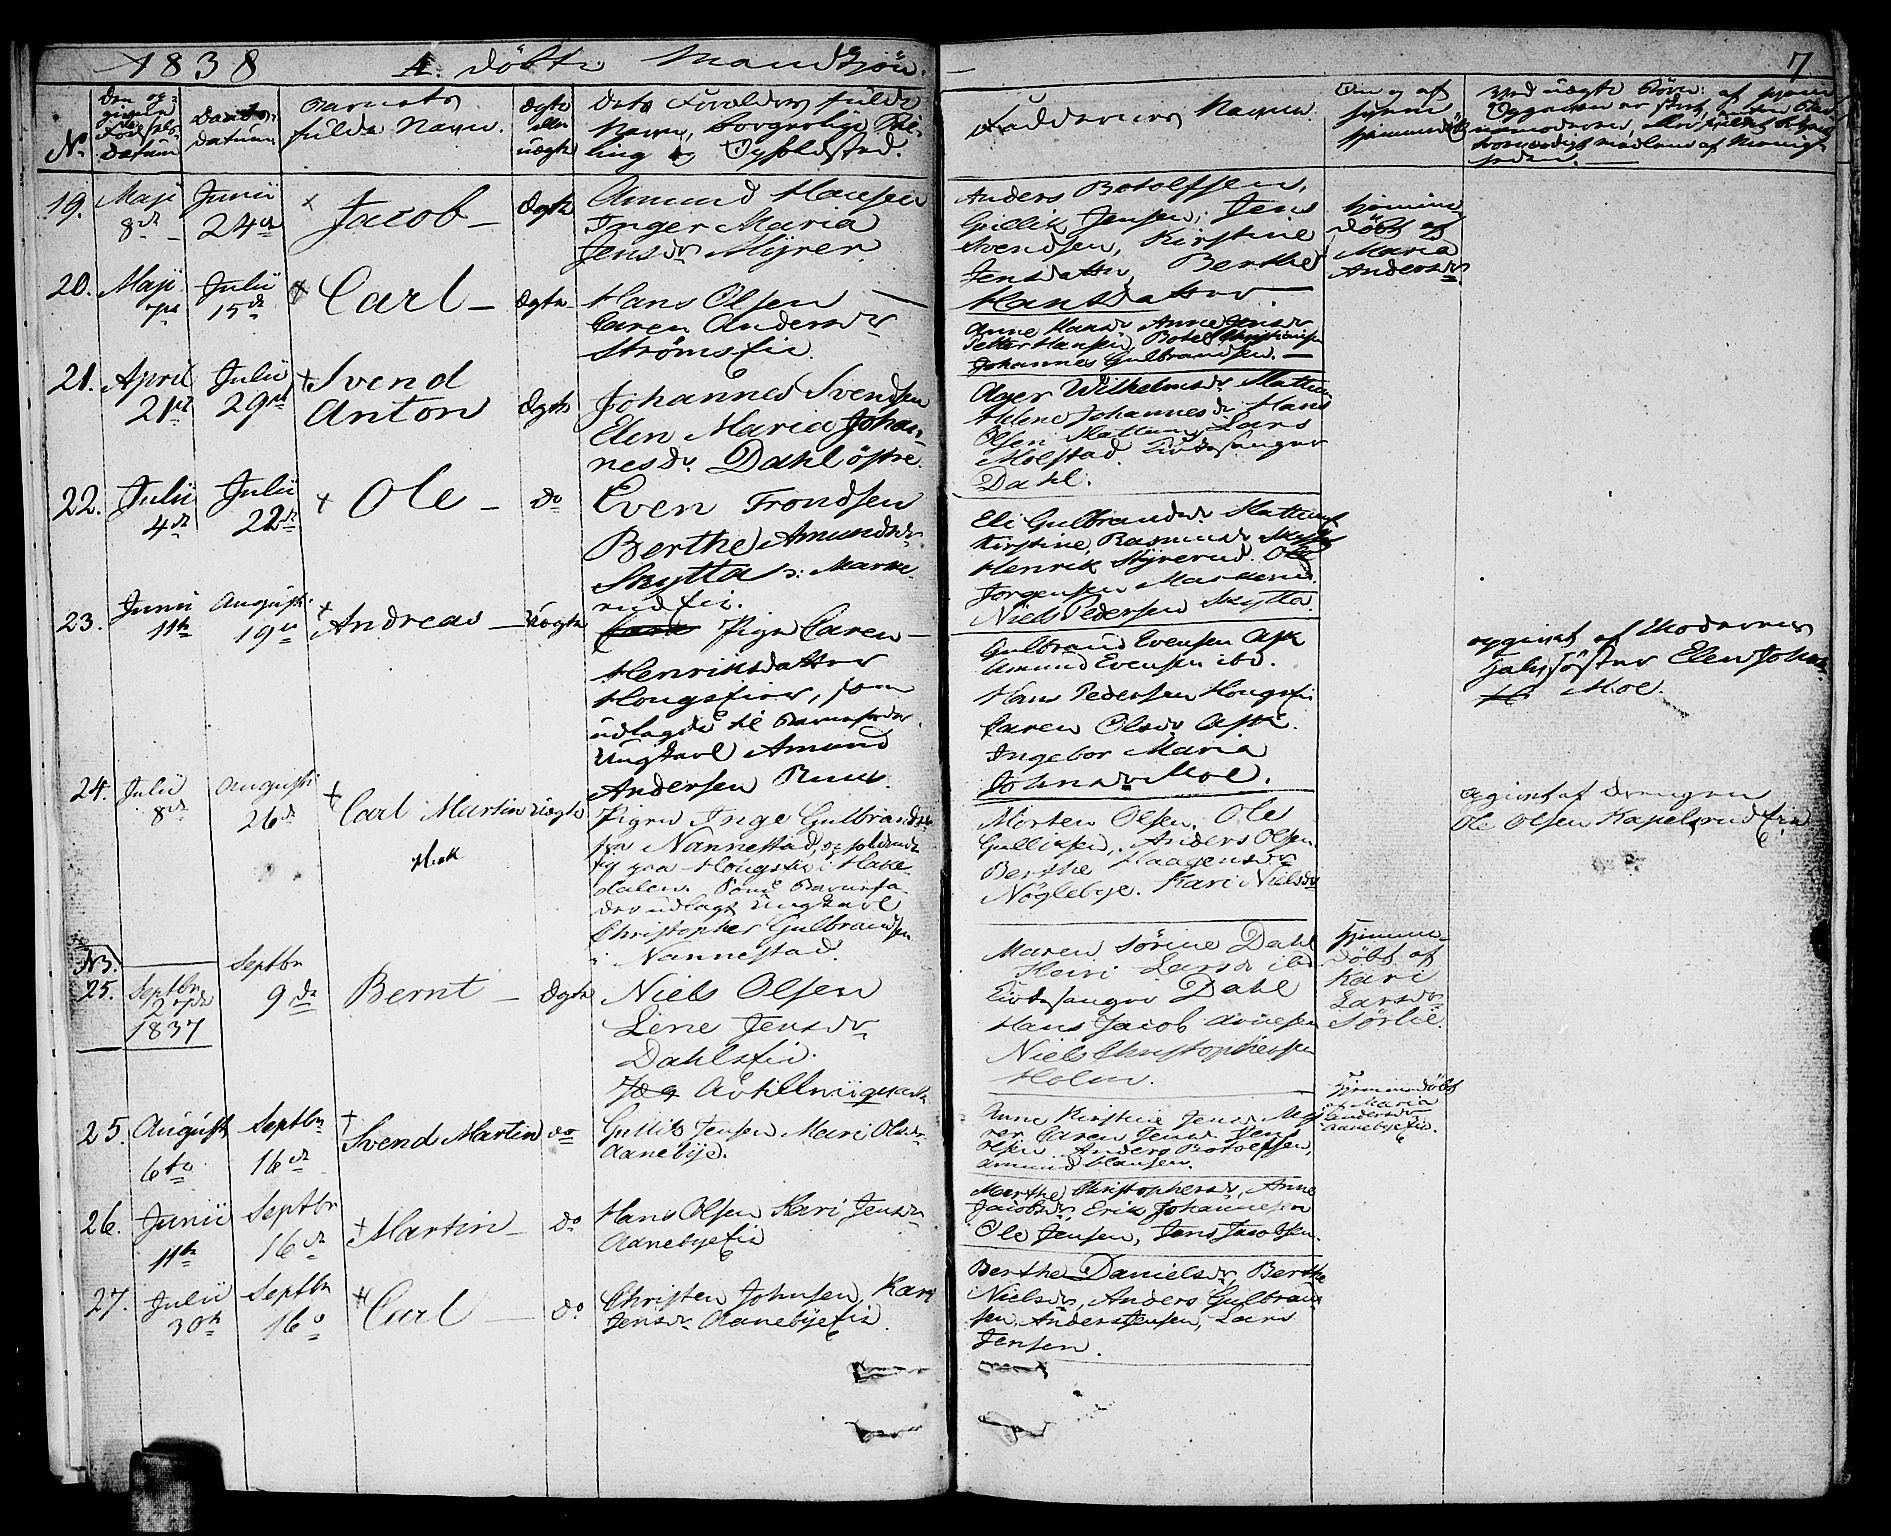 1838 A. Döbte Mandkjön. 7
No Den opgivne Fødsels Datum Daabs Datum Barnets fulde Navn. Ægte eller uægte Dets Forældres fulde Navn, borgerlige Stilling og Opholdssted. Faddernes Navne.
19. Maji 8de Junii 24de Jacob Ægte
Amund Hansen
Inger Maria
Jensdr Myrer.
Anders Botolfsen,
Gullik Jensen, Jens
Svendsen, Kirstine
Jensdatter, Berthe
Hansdatter.
hjemme
døbt af
Maria
Andersdr.
20. Maji Julii 15de Carl Ægte
Hans Olsen
Caren Andersdr
Strømseie.
Anne Hansdr Anne Jensdr
Petter Hansen, Botel Christiansen
Johannes Gulbrandsen.
21. April 21de Julii 29de Svend Anton Ægte
Johannes Svendsen
Elen Maria Johan-
nesdr Dahl østre.
Wilhelmsdr Slattum
Helene Johannesdr Hans
Olsen Slattum, Lars
Molstad. Kirkesanger
Dahl.
22. Julii 4de Julii 22de Ole do
Even Trondsen
Berthe Amundsdr
Skytta Marke-
rudeie.
Eli Gulbrandsdr Slattum
Kirstine Rasmusdr Skytta
Henrik Styrerud. Ole
Jørgensen Markerud.
Niels Pedersen Skytta.
23. Junii 11te Augusti 19de Andreas Uægte
Pige Caren
Henriksdatter
Hougseier, som
udlagde til Barnefader
Ungkarl Amund
Andersen Ruus.
Gulbrand Evensen Ask
Amund Evensen ibd.
Hans Pedersen Hougseie
Caren Olsdr Ask.
Ingebor Maria
Johnsdr Moe.
opgivet af Moderens
halvsøster Elen Johns-
dr Moe.
24. Julii 8de Augusti 26de Carl Martin Uægte
Hak
Pigen Inge Gulbrandsdr
fra Nannestad, opholdende
sig paa Hougseie i Hake-
dalen. Som Barnefa-
der udlagt Ungkarl
Christopher Gulbrandsen
i Nannestad.
Morten Olsen, Ole
Gulliksen, Anders Olsen
Berthe Haagensdr
Nøglebye. Kari Nielsdr
opgivet af drengen
Ole Olsen Hapelsrudeie
N3.
25. Septbr 1837 Septbr 9de Bernt Ægte
Niels Olsen
Line Jensdr
Dahlseie.
Maren Sørine Dahl
Kari Larsdr ibd
Kirkesanger Dahl
Hans Jacob Arnesen
Niels Christophersen
Holm.
hjemme-
døbt af
Kari
Larsdr
Sørlie.
25. Augusti 6te Septbr 16de Svend Martin do
Gullik Jensen Mari Olsdr
Aanebye.
Anne Kirstine Jensdr My-
rer Caren Jensdr Jens
Olsen Anders Botolfsen,
Amund Hansen.
hjemmedøbt
af Maria
Andersdr
Aanebyeeie.
26. Junii 11te Septbr 16de Martin do
Hans Olsen Kari Jensdr
Aanebyeeie
Marthe Christophersdr, Anne
Jacobsdr Erik Johannesen
Ole Jensen, Jens Jacobsen.
27. Julii 30te Septbr 16de Carl do
Christen Johnsen, Kari
Jensdr Aanebyeeie.
Berthe Danielsdr, Berthe
Nielsdr, Anders Gulbrand-
sen, Anders Jensen, Lars
Jensen.